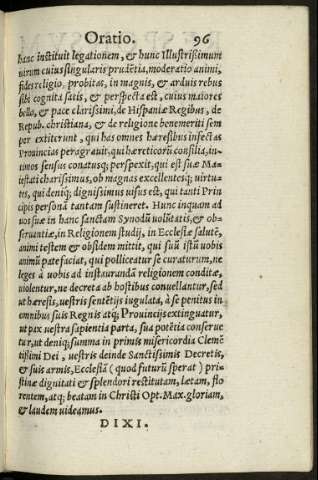 Oratio. 96
hanc instituit legationem, & hunc Illustrißimum
uirum cuius singularis prudẽtia, moderatio animi,
fides religio, probitas, in magnis, & arduis rebus
sibi cognita satis, & perspecta est, cuius maiores
bello, & pace clarissimi, de Hispaniæ Regibus, de
Repub. christiana, & de religione benemeriti sem
per extiterunt, qui has omnes hæresibus infectas
Prouincias peragrauit, qui hæreticorũ consilia, in-
timos sensus conatusq; perspexit, qui est suæ Ma-
iestati charissimus, ob magnas excellentesq; uirtu-
tes, qui deniq; dignissimus uisus est, qui tanti Prin
cipis personã tantam sustineret. Hunc inquam ad
uos suæ in hanc sanctam Synodũ uolũtatis, & ob-
seruantiæ, in Religionem studij, in Ecclesiæ salutẽ,
animi testem & obsidem mittit, qui suũ istũ uobis
animũ patefaciat, qui polliceatur se curaturum, ne
leges à uobis ad instaurandã religionem conditæ,
uiolentur, ne decreta ab hostibus conuellantur, sed
ut hæresis, uestris sentẽtijs iugulata, à se penitus in
omnibus suis Regnis atq; Prouincijs extinguatur,
ut pax uestra sapientia parta, sua potẽtia conserue
tur, ut deniq; summa in primis misericordia Clemẽ
tißimi Dei, uestris deinde Sanctissimis Decretis,
& suis armis, Ecclesiã ( quod futurũ sperat ) pri-
stinæ dignitati & splendori restitutam, lætam, flo
rentem, atq; beatam in Christi Opt. Max. gloriam,
& laudem uideamus.
DIXI.